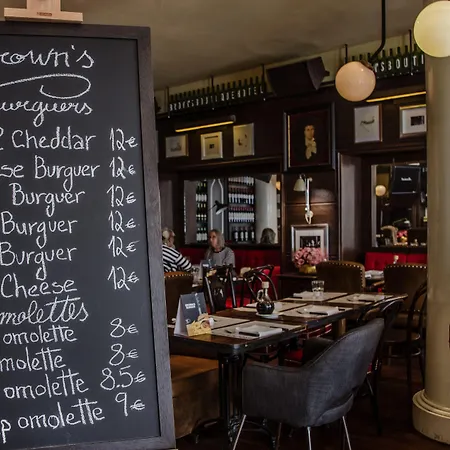 rown's
urguers
Cheddar 12€
se Burguer 12€
Burguer 12€
Burguer 12€
Burguer 12€
Cheese 12€
omolettes
omolette 8€
omolette 8€
omolette 8.5€
p omolette 9€